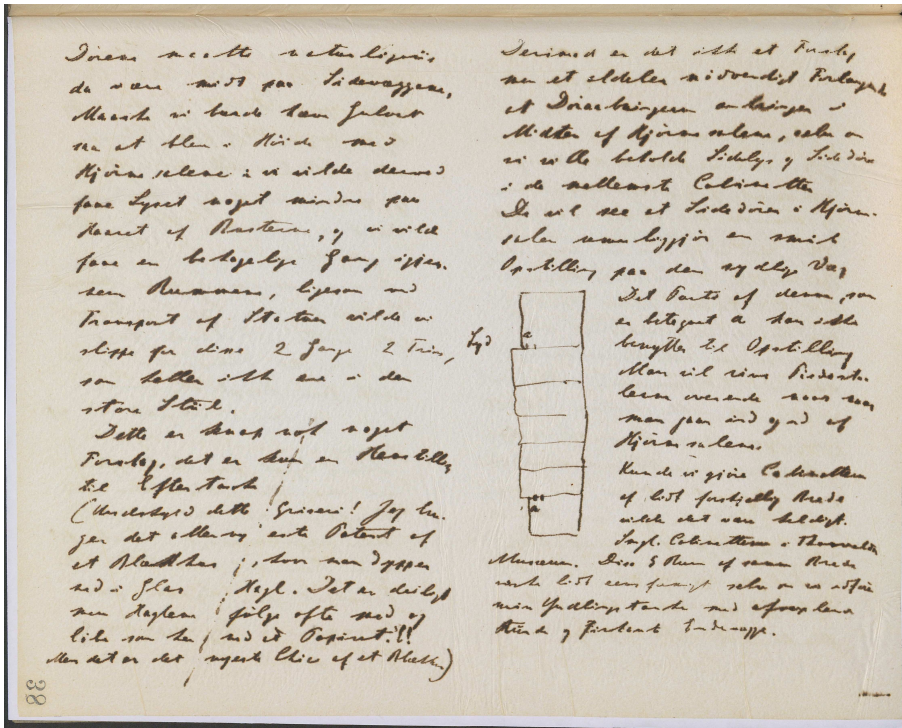 Dörene maatte naturligviis
da være midt paa Sidevæggene,
Maaske vi burde hæve Gulvet
saa at blev i Höide med
Hjörnesalene: vi vilde derved
faae Lyset noget mindre paa
Haaret af Busterne, og vi vilde
faae en behagelige Gang igjen-
nem Rummene, ligesom ved
Transport af Statuer vilde vi
slippe for disse 2 Gange 2 Trin,
som heller ikke ere i den
store Stiil.
Dette er knap nok noget
Forslag, det er kun en Henstilling
til Eftertanke
(Undskyld dette Griseri! Jeg
det allernyeste Patent af
et Blækhus, hvor man dypper
ned i Glas Hagl. Det er deiligt
men Haglene följe ofte med og
ned at Papiret!!
Men det er det nyeste Chic af et Blækhus)
38
Derimod er det ikke et Forslag
men et aldeles nödvendigt Forlangende
at Döraabningerne anbringes i
Midten af Hjörnesalene, selv om
vi ville beholde Sidelys og Sidedöre
i de mellemste Cabinetter
De vil see at Sidedören i Hjörne-
salen umuliggjör en smuk
Opstilling paa den sydlige Væg
Det Parti af denne, som
er betegnet a kan ikke
benyttes til Opstilling
Man vil rive Piedesta-
lerne overende naar
man gaar ind og ud af
Hjörnesalene.
Syd
a
a
Kunde vi gjöre Cabinetterne
af lidt forskjellig Brede
vilde det være heldigt.
Cabinetterne i Thorvaldsens
Museum. Disse 5 Rum af samme Brede
lidt eensformigt selv om
min Yndlingstanke med afvexlende
Runde og Firkantede Endevægge.